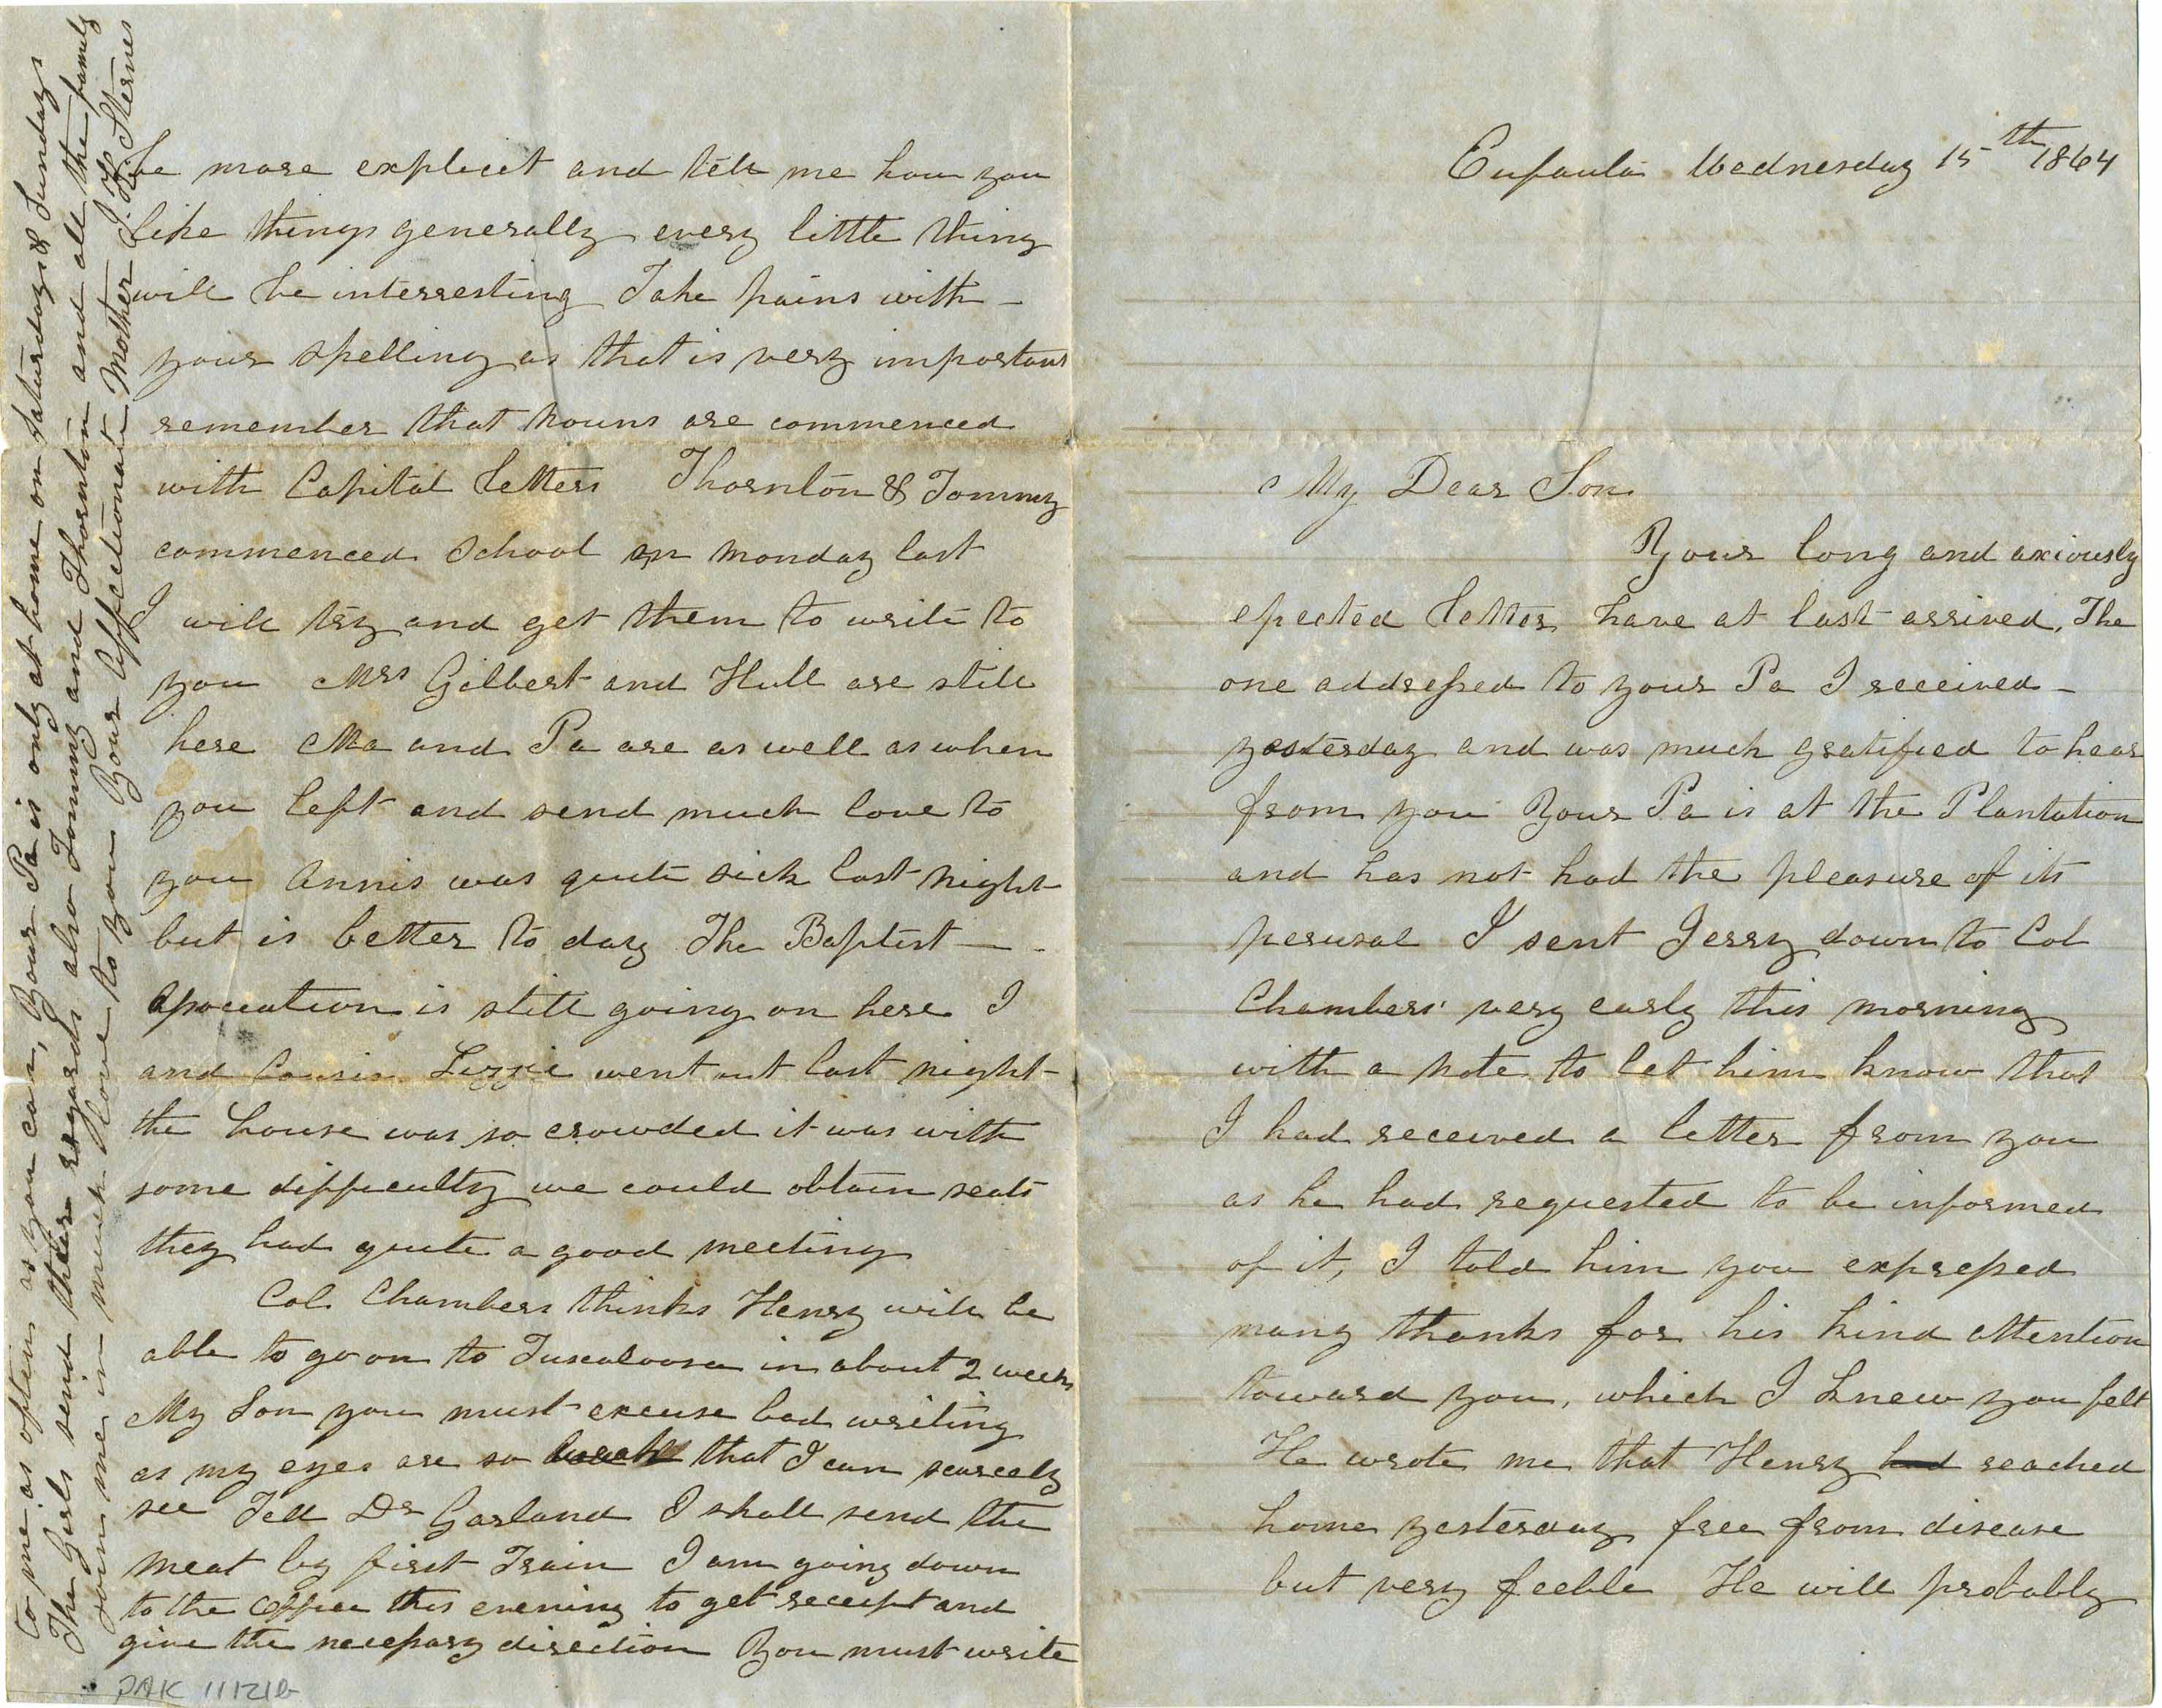 Eufaula Wednesday 15th 1864
My Dear Son
Your long and axiously
epected letter have at last arrived, The
one addressed to your Pa I received -
yesterday and was much gratified to hear
from you Your Pa is at the Plantation
and has not had the pleasure of its
perusal I sent Jerry down to Col
Chambers very early this morning
with a note to let him know that
I had received a letter from you
as he had requested to be informed
of it, I told him you expressed
many thanks for his kind attention
toward you, which I knew you felt
He wrote me that Henry had reached
home yesterday free from disease
but very feeble He will probably
be more explicit and tell me how you
like things generally every little thing
will be interresting Take pains with -
your spelling as that is very important
remember that nouns are commenced
with Capital letters Thornton & Tommy
commenced School on Monday last
I will try and get them to write to
you Mrs Gilbert and Hull are still
here Ma and Pa are as well as when
you left and send much love to
you Annis was quite sick last night
but is better to day The Baptist -
Association is still going on here I
and Cousin Lizzie went out last night
the house was so crowded it was with
some difficulty we could obtain seats
they had quite a good meeting
Col. Chambers thinks Henry will be
able to go on to Tuscaloosa in about 2 weeks
My Son you must excuse bad writing
as my eyes are so weak that I can scarcely
see Tell Dr Garland I shall send the
meat by first Train I am going down
to the office this evening to get receipt and
give the necessary direction You must write
to me as optein as you can, Your Pa is only at home on Saturdays & Sundays
The Girls send their regards also Tommy and Thornton and all the family
join me in much love to you Your Affectionate Mother
Sterns
PAK 11121b